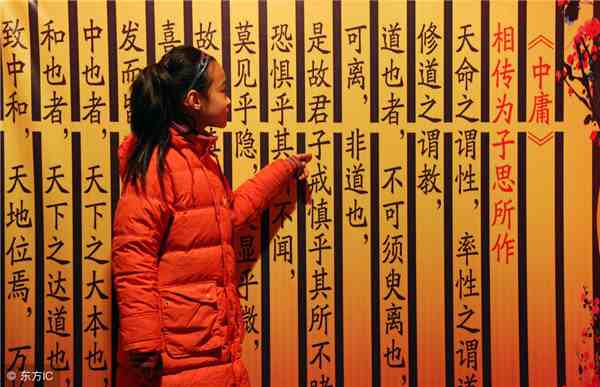 《中庸》
相传为子思所作
天命之谓性，率性之谓
修道之谓教，
道也者，不可须臾离也
可离，非道也，
是故君子戒慎乎其所不睹
恐惧乎其不闻，
莫见乎隐，显乎微，
故
喜
发而
中也者，天下之大本也
和也者，天下之达道也
致中和，天地位焉，万
东方IC